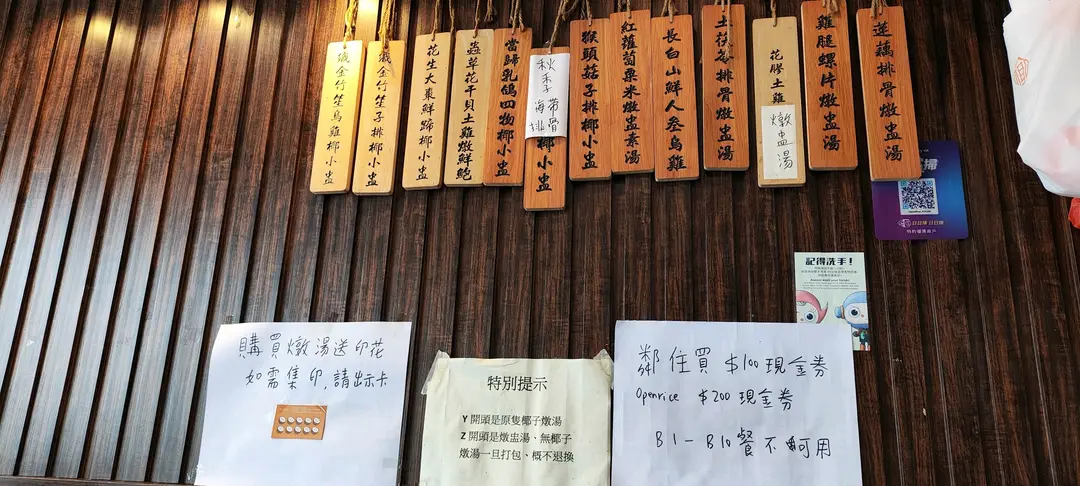 鹹金竹笙烏雞椰小盅
鹹金竹笙子排椰小盅
花生大棗鮮蹄椰小盅
蟲草花干貝土雞燉鮮鮑
當歸乳鴿四物椰小盅
秋季
海帶
排骨
椰小盅
猴頭菇子排椰小盅
紅蘿蔔粟米燉盅素湯
長白山鮮人叁烏雞
土茯苓排骨燉盅湯
花膠土雞
燉盅湯
雞腿螺片燉盅湯
蓮藕排骨燉盅湯
記得洗手!
購買燉湯送印花
如需集印,請出示卡
特別提示
Y 開頭是原隻椰子燉湯
Z 開頭是燉盅湯、無椰子
燉湯一旦打包、概不退換
鄰住買 $100現金券
Openrice $200現金券
B1-B10餐不可用